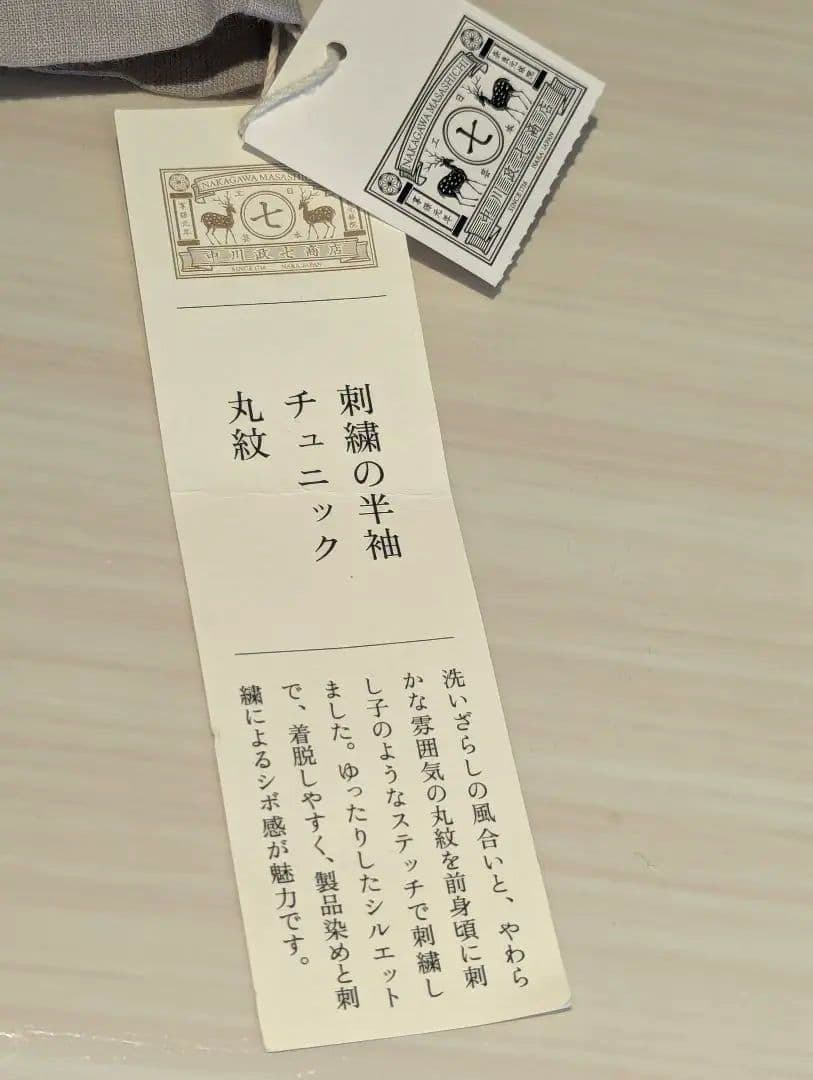 NAKAGAWA MASASHICHI
日本
工芸
七
享保元年
中川政七商店
SINCE 1716 NARA JAPAN
NAKAGAWA MASASHICHI
日本
工芸
七
享保元年
中川政七商店
SINCE 1716 NARA JAPAN
刺繍の半袖
チュニック
丸紋
洗いざらしの風合いと、やわら
かな雰囲気の丸紋を前身頃に刺
し子のようなステッチで刺繍し
ました。ゆったりしたシルエット
で、着脱しやすく、製品染めと刺
繍によるシボ感が魅力です。